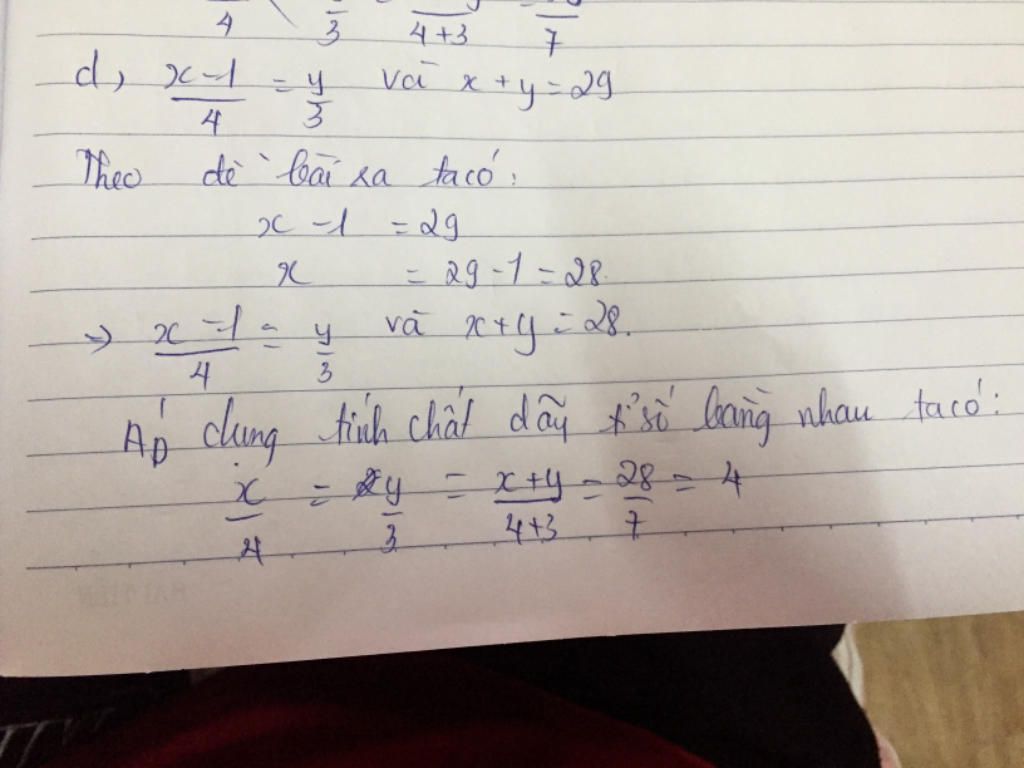 4 3 4+3 7
d, x-1/4 = y/3 và x+y=29
Theo đề bài ra ta có:
x -1 = 29
x = 29-1 = 28.
=> x-1/4 = y/3 và x+y = 28.
ÁD dụng tính chất dãy tỉ số bằng nhau ta có:
x/4 = y/3 = x+y/4+3 = 28/7 = 4